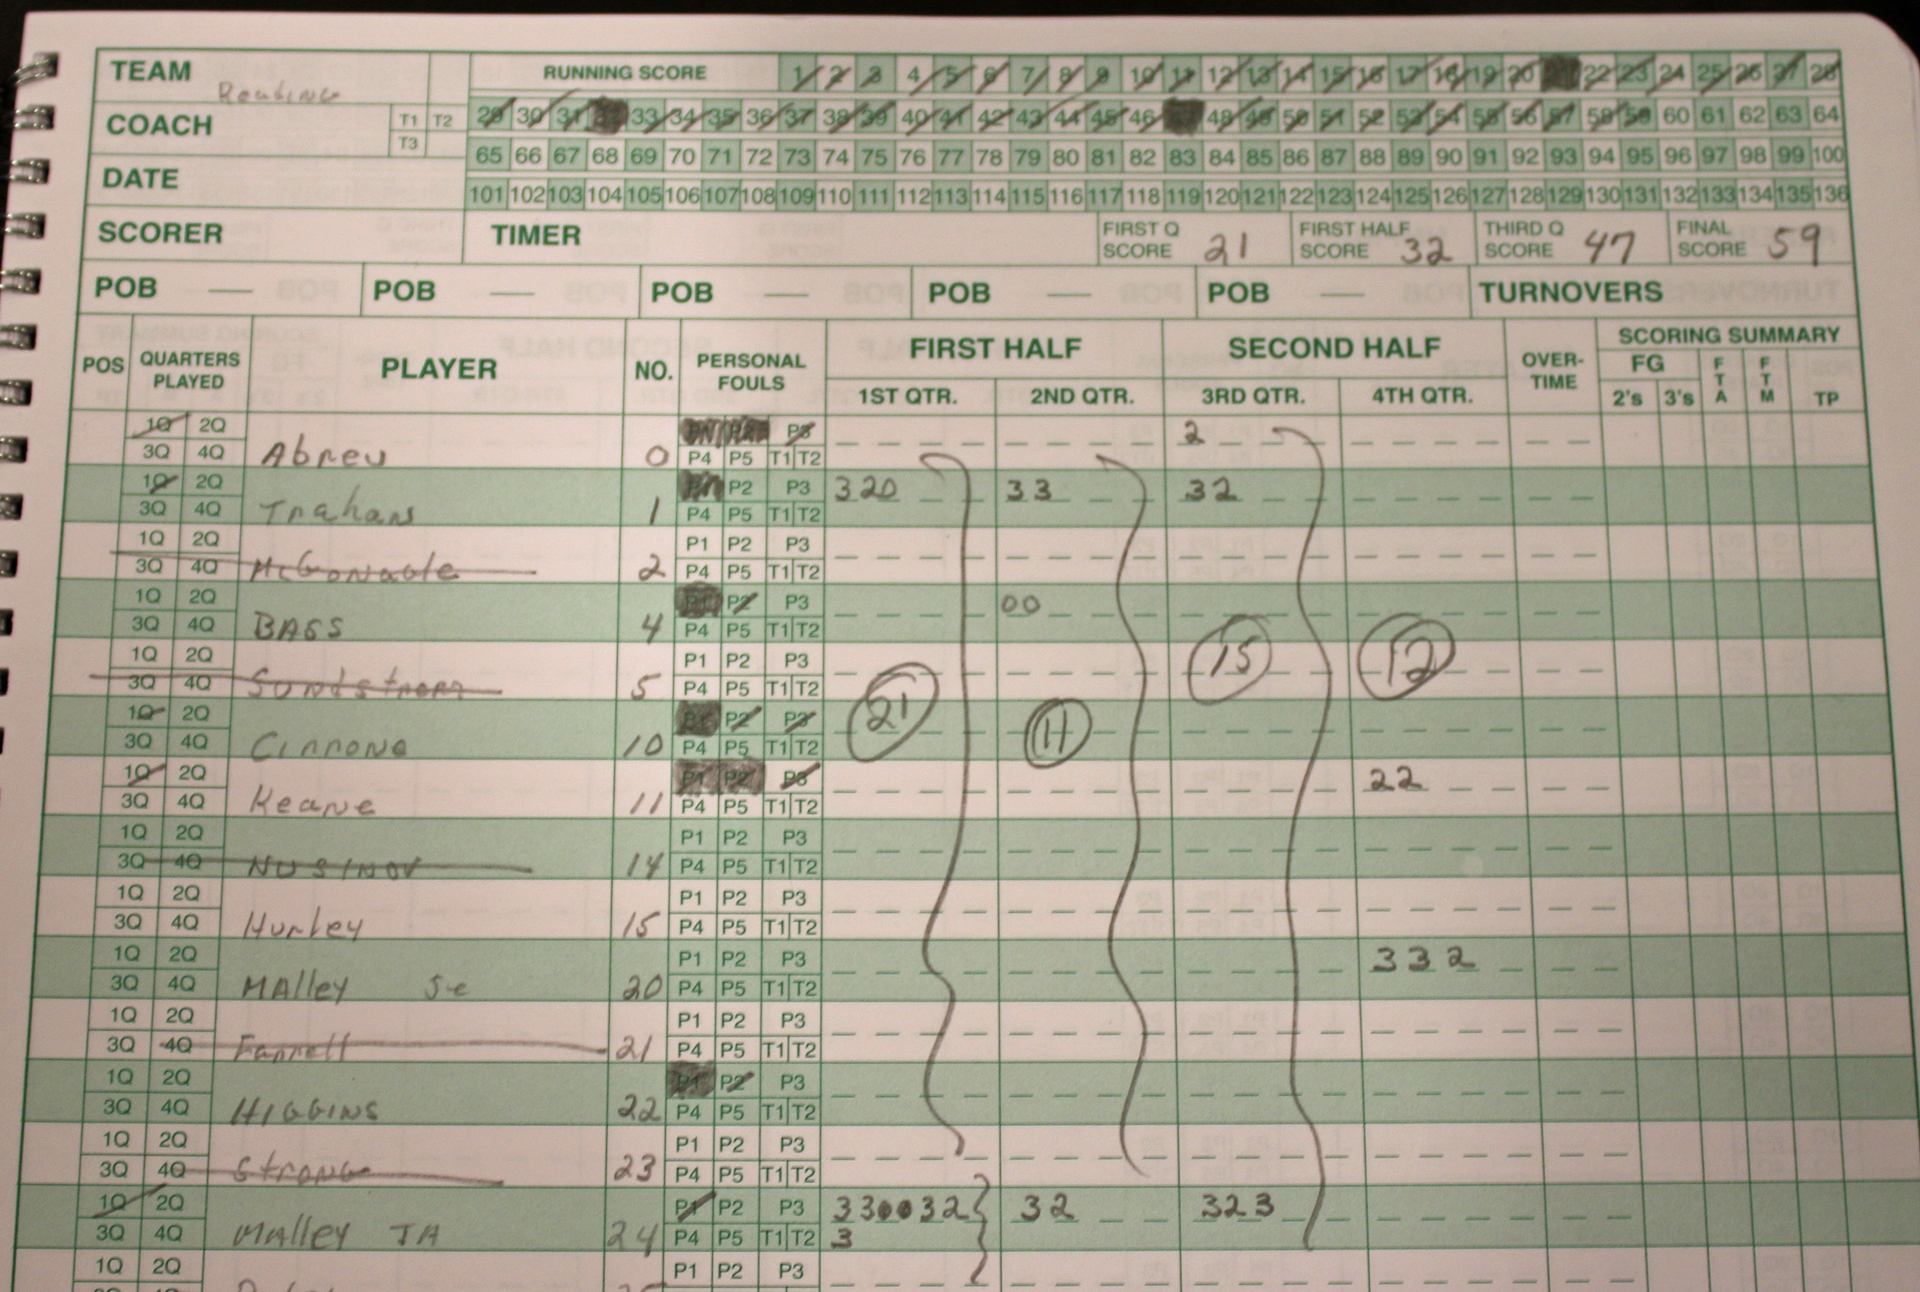 TEAM Reading RUNNING SCORE 1 2 3 4 5 6 7 8 9 10 11 12 13 14 15 16 17 18 19 20 22 23 24 25 26 27 28
COACH T1 T2 T3 29 30 31 33 34 35 36 37 38 39 40 41 42 43 44 45 46 48 49 50 51 52 53 54 55 56 57 58 59 60 61 62 63 64
65 66 67 68 69 70 71 72 73 74 75 76 77 78 79 80 81 82 83 84 85 86 87 88 89 90 91 92 93 94 95 96 97 98 99 100
DATE 101 102 103 104 105 106 107 108 109 110 111 112 113 114 115 116 117 118 119 120 121 122 123 124 125 126 127 128 129 130 131 132 133 134 135 136
SCORER TIMER FIRST Q SCORE 21 FIRST HALF SCORE 32 THIRD Q SCORE 47 FINAL SCORE 59
POB — POB — POB — POB — POB — TURNOVERS
POS QUARTERS PLAYED PLAYER NO. PERSONAL FOULS FIRST HALF SECOND HALF OVER-TIME SCORING SUMMARY
1ST QTR. 2ND QTR. 3RD QTR. 4TH QTR. FG 2's 3's FTA FTM TP
1Q 2Q P3 2
3Q 4Q Abreu 0 P4 P5 T1 T2
1Q 2Q P2 P3 320 33 32
3Q 4Q Trahan 1 P4 P5 T1 T2
1Q 2Q P1 P2 P3
3Q 4Q McGonagle 2 P4 P5 T1 T2
1Q 2Q P1 P2 P3 00
3Q 4Q BASS 4 P4 P5 T1 T2
1Q 2Q P1 P2 P3 15 12
3Q 4Q Sundstrom 5 P4 P5 T1 T2
1Q 2Q P1 P2 P3 21 11
3Q 4Q Cirrone 10 P4 P5 T1 T2
1Q 2Q P1 P2 P3 22
3Q 4Q Keane 11 P4 P5 T1 T2
1Q 2Q P1 P2 P3
3Q 4Q NUSINOV 14 P4 P5 T1 T2
1Q 2Q P1 P2 P3
3Q 4Q Hurley 15 P4 P5 T1 T2
1Q 2Q P1 P2 P3 332
3Q 4Q MAlley Se 20 P4 P5 T1 T2
1Q 2Q P1 P2 P3
3Q 4Q Farrell 21 P4 P5 T1 T2
1Q 2Q P1 P2 P3
3Q 4Q HIGGINS 22 P4 P5 T1 T2
1Q 2Q P1 P2 P3
3Q 4Q Strong 23 P4 P5 T1 T2
1Q 2Q P1 P2 P3 330032 32 323
3Q 4Q MAlley JA 24 P4 P5 T1 T2 3
1Q 2Q P1 P2 P3